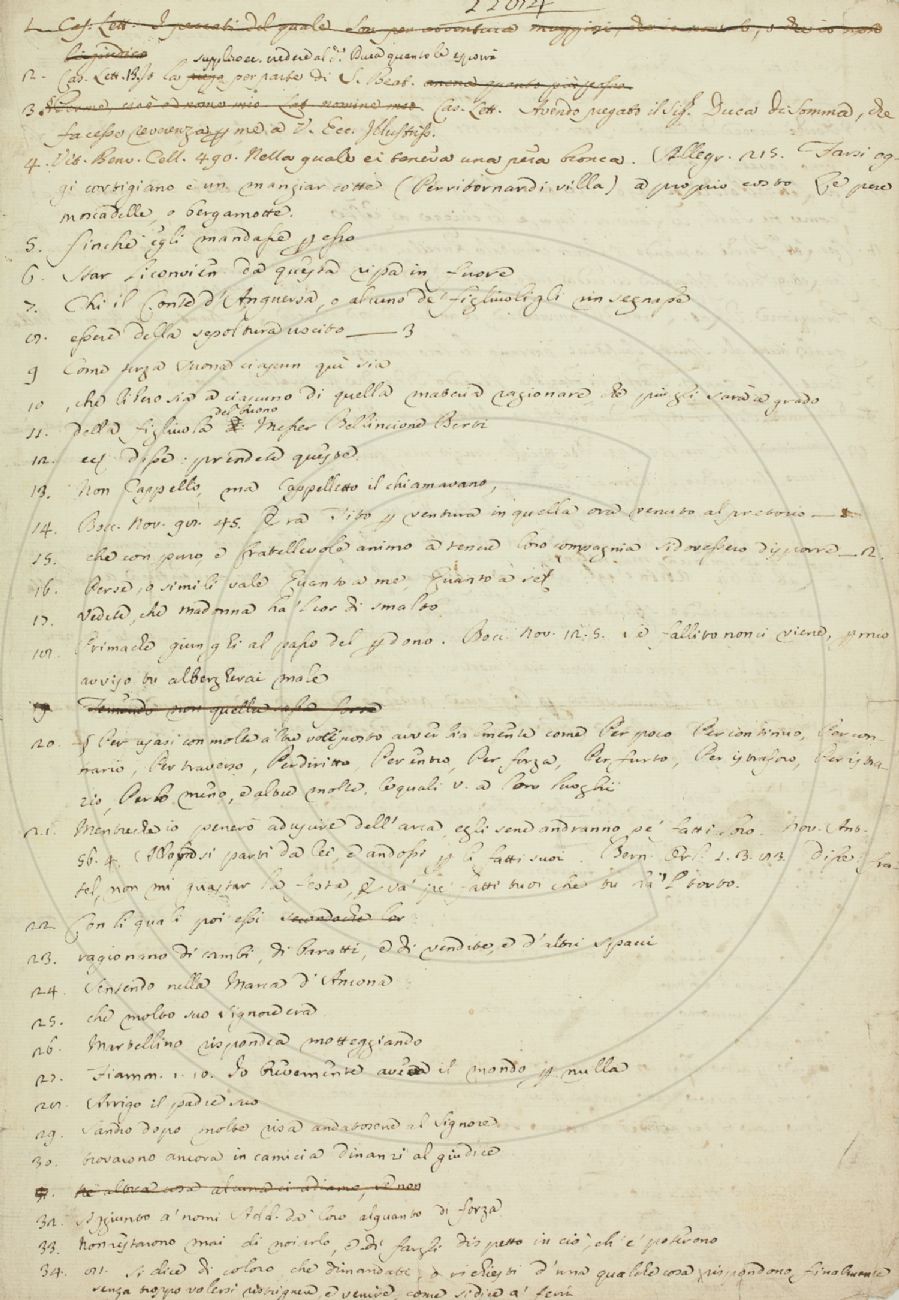 1. Cas. Lett. I peccati del quale son per avventura maggiori, che io non
li giudico
supplico ec. vedere al S. Duca quanto le
2. Cas. Lett. 13. Io la per parte di S. Beat.
3. Cas. Lett. Avendo pregato il Sig. Duca di Somma, che
facesse reverenza p me a V. Ecc. Illustriss.
4. Vit. Benv. Cell. 490. Nella quale ei teneva una pera bronca. Allegr. 215. Farsi og-
gi cortigiano è un mangiar cotte (Per ritornar di villa) a proprio costo le pere
moscadelle, o bergamotte.
5. Finchè egli mandasse p esso
6. Star da questa ripa in fuore
7. Chi il Conte d'Anguersa, o alcuno de' figliuoli gli rinsegnasse
8. essere della sepoltura uscito — 3
9 Come senza vuona ciascun qui sia
10 che libero sia a ciascuno di quella materia ragionare che più gli sarà a grado
del buono
11. della figliuola Messer Bellincione Berti
12. ed disse: prendete queste
13. Non Cappello, ma Cappelletto il chiamavano,
14. Bocc. Nov. 98. 45. Era Tito p ventura in quella ora venuto al pretorio —
15. che con puro, e fratellevole animo a tener loro compagnia si dovessero disporre — 2.
16. Per se, o simili vale Quanto a me, Quanto a se
17. Vedete, che madonna ha 'l cor di smalto
18. Primachè giunghi al passo del pdono. Bocc. Nov. 12. 5. e fallito non ci viene, p mio
avviso tu albergherai male
19 Temendo non quella
20. § Per usasi con molte altre voci posto avverbialmente come Per poco Per continuo, Per con-
trario, Per traverso, Per diritto, Per entro, Per forza, Per furto, Per istraforo, Per istra-
zio, Perlo meno, ed altre molte, le quali v. a loro luoghi
21. Mentrechè io penerò ad uscire dell'arca, egli se ne andranno pe' fatti loro. Nov. Ant.
56. 4. Allora si partì da lei, ed andossi p li fatti suoi. Bern. Orl. 1. 3. 83. Disse fra-
tel, non mi guastar la festa, E va' pe' fatti tuoi che tu ha' 'l torto.
22. Con li quali poi essi secondochè lor
23. ragionano di cambi, di baratti, e di vendite, e d'altri spacci
24. Sentendo nella Marca d'Ancona
25. che molto suo signore era
26. Martellino rispondea motteggiando
27. Fiamm. 1. 10. Io brevemente aveva il mondo p nulla
28. Arrigo il padre suo
29. Sandro dopo molte risa andatosene al Signore
30. trovarono ancora in camicia dinanzi al giudice
nè altra cosa alcuna ci udiamo, se non
32. Aggiunto a' nomi Add. dà loro alquanto di forza
33. Non ristarono mai di noiarlo, e di fargli dispetto in ciò, ch'e' poterono
34. si dice di coloro che dimandati, o richiesti d'una qualche cosa, rispondono finalmente
senza troppo volersi ristrignere, e venire, come si dice a' ferri